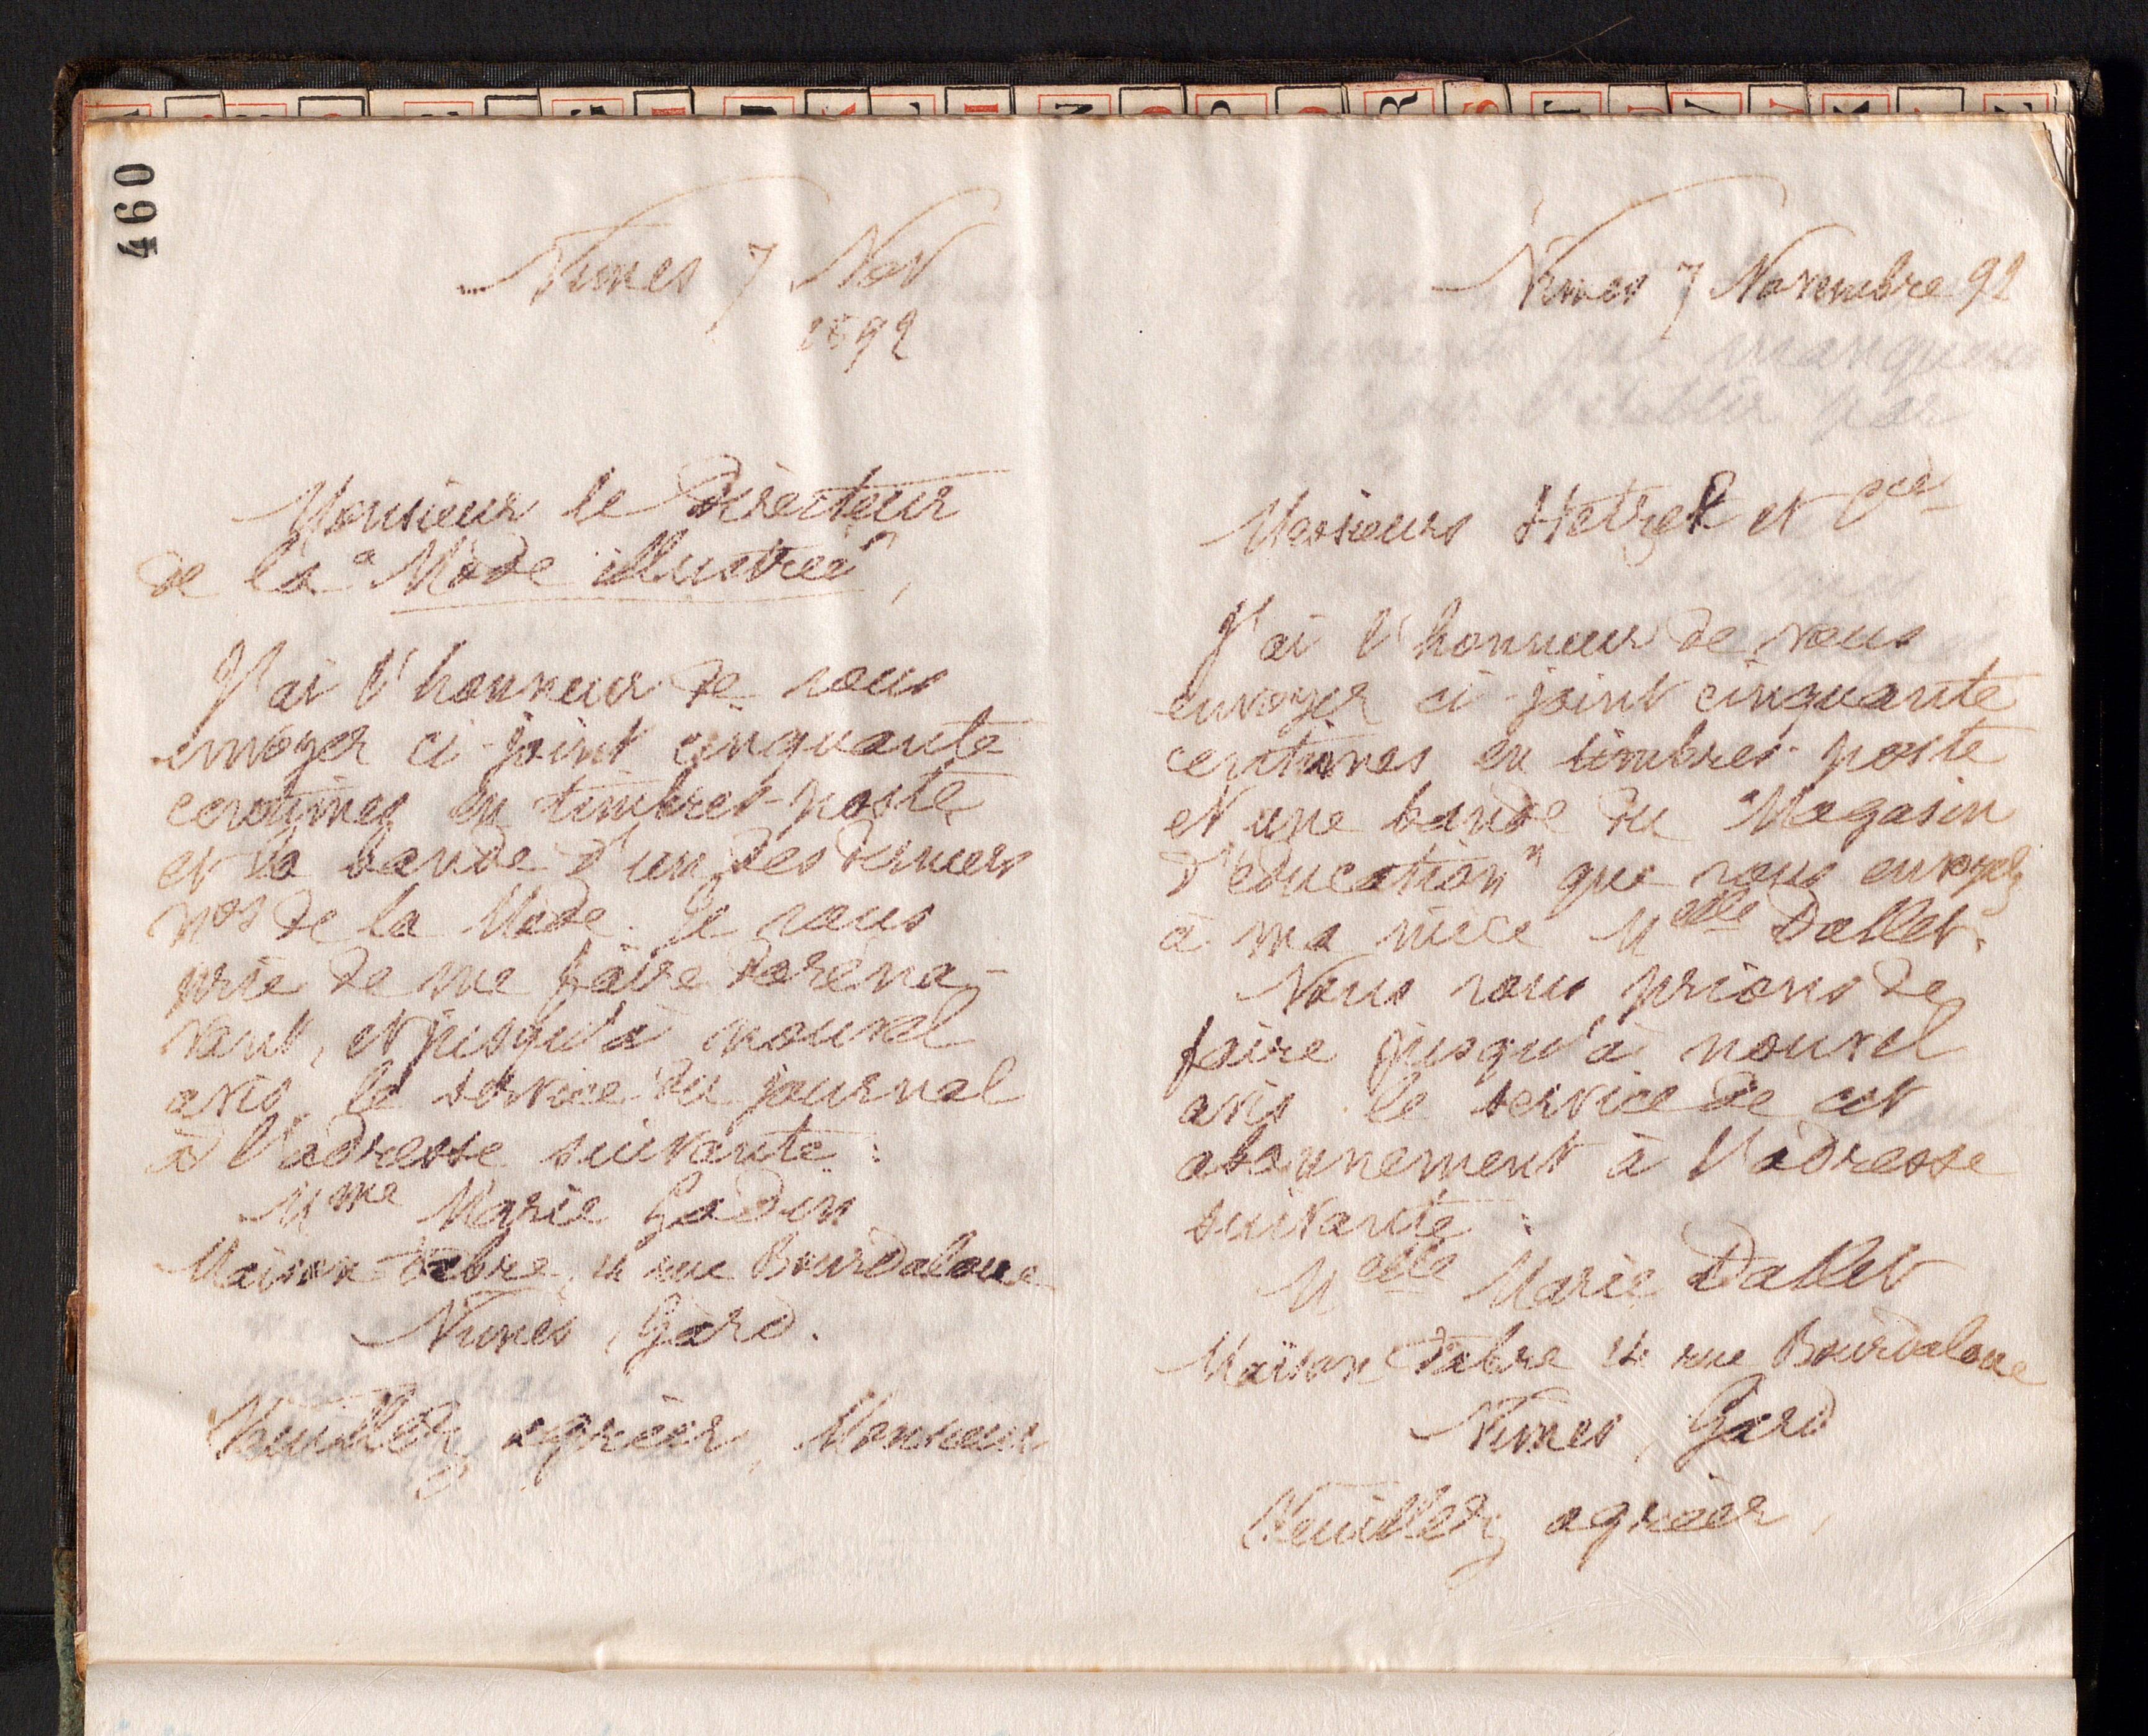 460
Nimes 7 Nov
1892
Monsieur le Directeur
de la "Mode illustrée",
J'ai l'honneur de vous
envoyer ci-joint cinquante
centimes en timbres-poste
et la bande d'un des derniers
nos de la Mode. Je vous
prie de me faire doréna-
vant, et jusqu'à nouvel
avis le service du journal
à l'adresse suivante :
Mme Marie Godin
Maison Fabre, 14 rue Bourdaloue
Nimes, Gard.
Veuillez agréer, Monsieur
Nimes 7 Novembre 92
Messieurs Hetzel et Cie
J'ai l'honneur de vous
envoyer ci-joint cinquante
centimes en timbres-poste
et une bande du "Magasin
d'éducation" que vous envoyez
à ma nièce Melle Dallet.
Nous vous prions de
faire jusqu'à nouvel
avis le service de cet
abonnement à l'adresse
suivante :
Melle Marie Dallet
Maison Fabre 14 rue Bourdaloue
Nimes, Gard
Veuillez agréer,